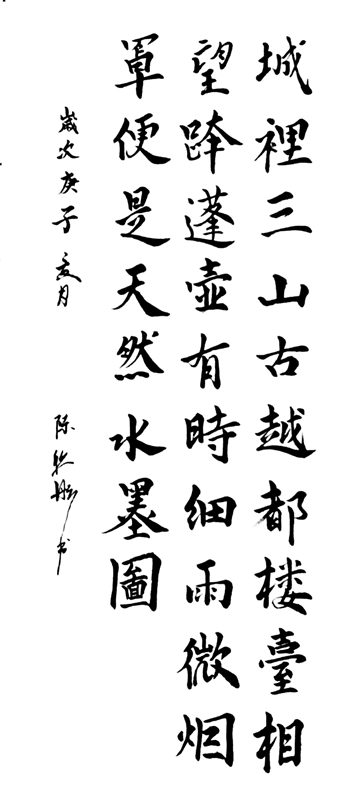 城裡三山古越都楼臺相
望跨蓬壺有時細雨微烟
罩便是天然水墨圖
歲次庚子夏月
陈书